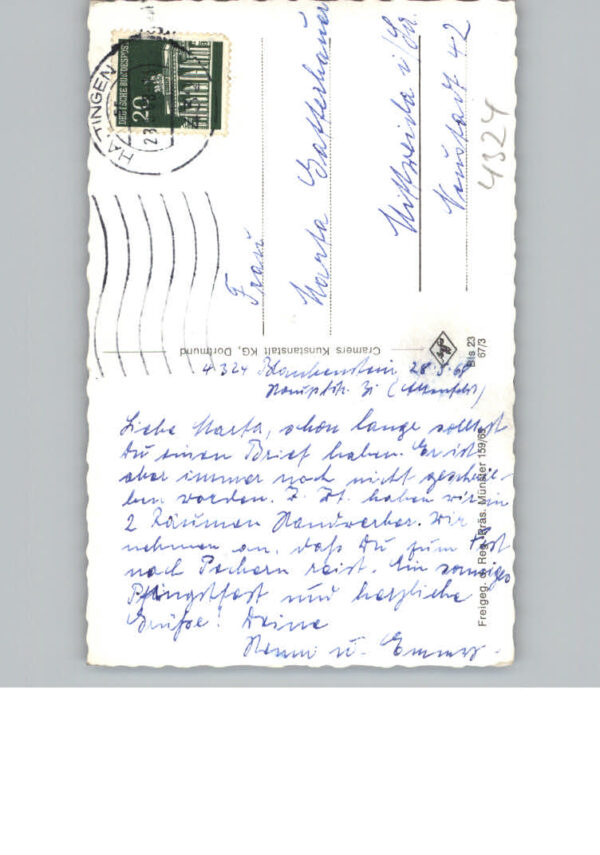 4324 Blankenstein 28.5.68
Hauptstr. 31 (Altenheim)
Liebe Marta, schon lange solltest
Du einen Brief haben. Er ist
aber immer noch nicht geschrie-
ben worden. Z. Zt. haben wir in
2 Räumen Handwerker. Wir
nehmen an, daß Du zum Fest
nach reist. Ein sonniges
Pfingstfest und herzliche
Grüße! Deine
u. Emmy.
Frau
Marta Gatterbauer
Mittweida i/Sa.
Neustadt 42
4324
HATTINGEN
DEUTSCHE BUNDESPOST
20
Cramers Kunstanstalt KG, Dortmund
Bls 23
67/3
Freigeg. d. Reg. Präs. Münster 159/66